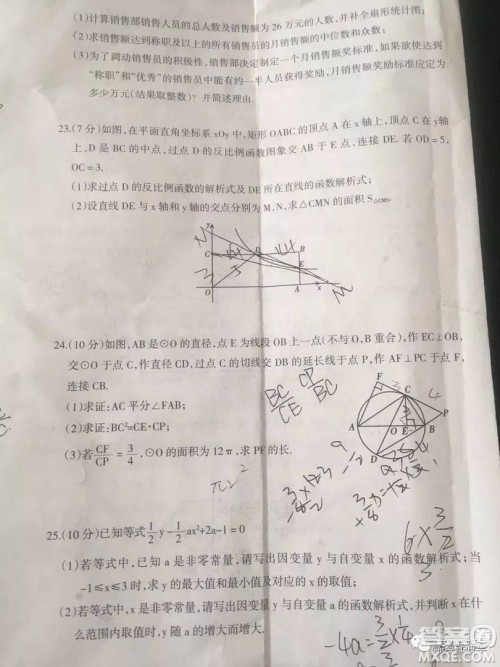 (1)计算销售部销售人员的总人数及销售额为26万元的人数,并补全扇形统计图;
(2)求销售额达到称职及以上的所有销售员的月销售额的中位数和众数;
(3)为了调动销售员的积极性,销售部决定制定一个月销售额奖标准,如果欲使达到
“称职”和“优秀”的销售员中能有约一半人员获得奖励,月销售额奖励标准应定为
多少万元(结果取整数)?并简述理由.
23.(7分)如图,在平面直角坐标系xOy中,矩形OABC的顶点A在x轴上,顶点C在y轴
上,D是BC的中点,过点D的反比例函数图象交AB于E点,连接DE.若OD=5,
OC=3.
(1)求过点D的反比例函数的解析式及DE所在直线的函数解析式;
(2)设直线DE与x轴和y轴的交点分别为M,N,求△CMN的面积S△CMN.
N
y
C
D
B
3
5
E
O
A
x
M
24.(10分)如图,AB是⊙O的直径,点E为线段OB上一点(不与O,B重合),作EC⊥OB,
交⊙O于点C,作直径CD,过点C的切线交DB的延长线于点P,作AF⊥PC于点F,
连接CB.
(1)求证:AC平分∠FAB;
(2)求证:BC²=CE•CP;
(3)若CF/CP=3/4,⊙O的面积为12π,求PF的长.
BC/CE CP/BC
F
3
C
4
P
A
O
E
B
D
25.(10分)已知等式1/2y-1/2ax²+2a-1=0
(1)若等式中,已知a是非零常量,请写出因变量y与自变量x的函数解析式;当
-1≤x≤3时,求y的最大值和最小值及对应的x的取值;
(2)若等式中,x是非零常量,请写出因变量y与自变量a的函数解析式,并判断x在什
么范围内取值时,y随a的增大而增大.
6×3/2
答案圈
MXQE.COM